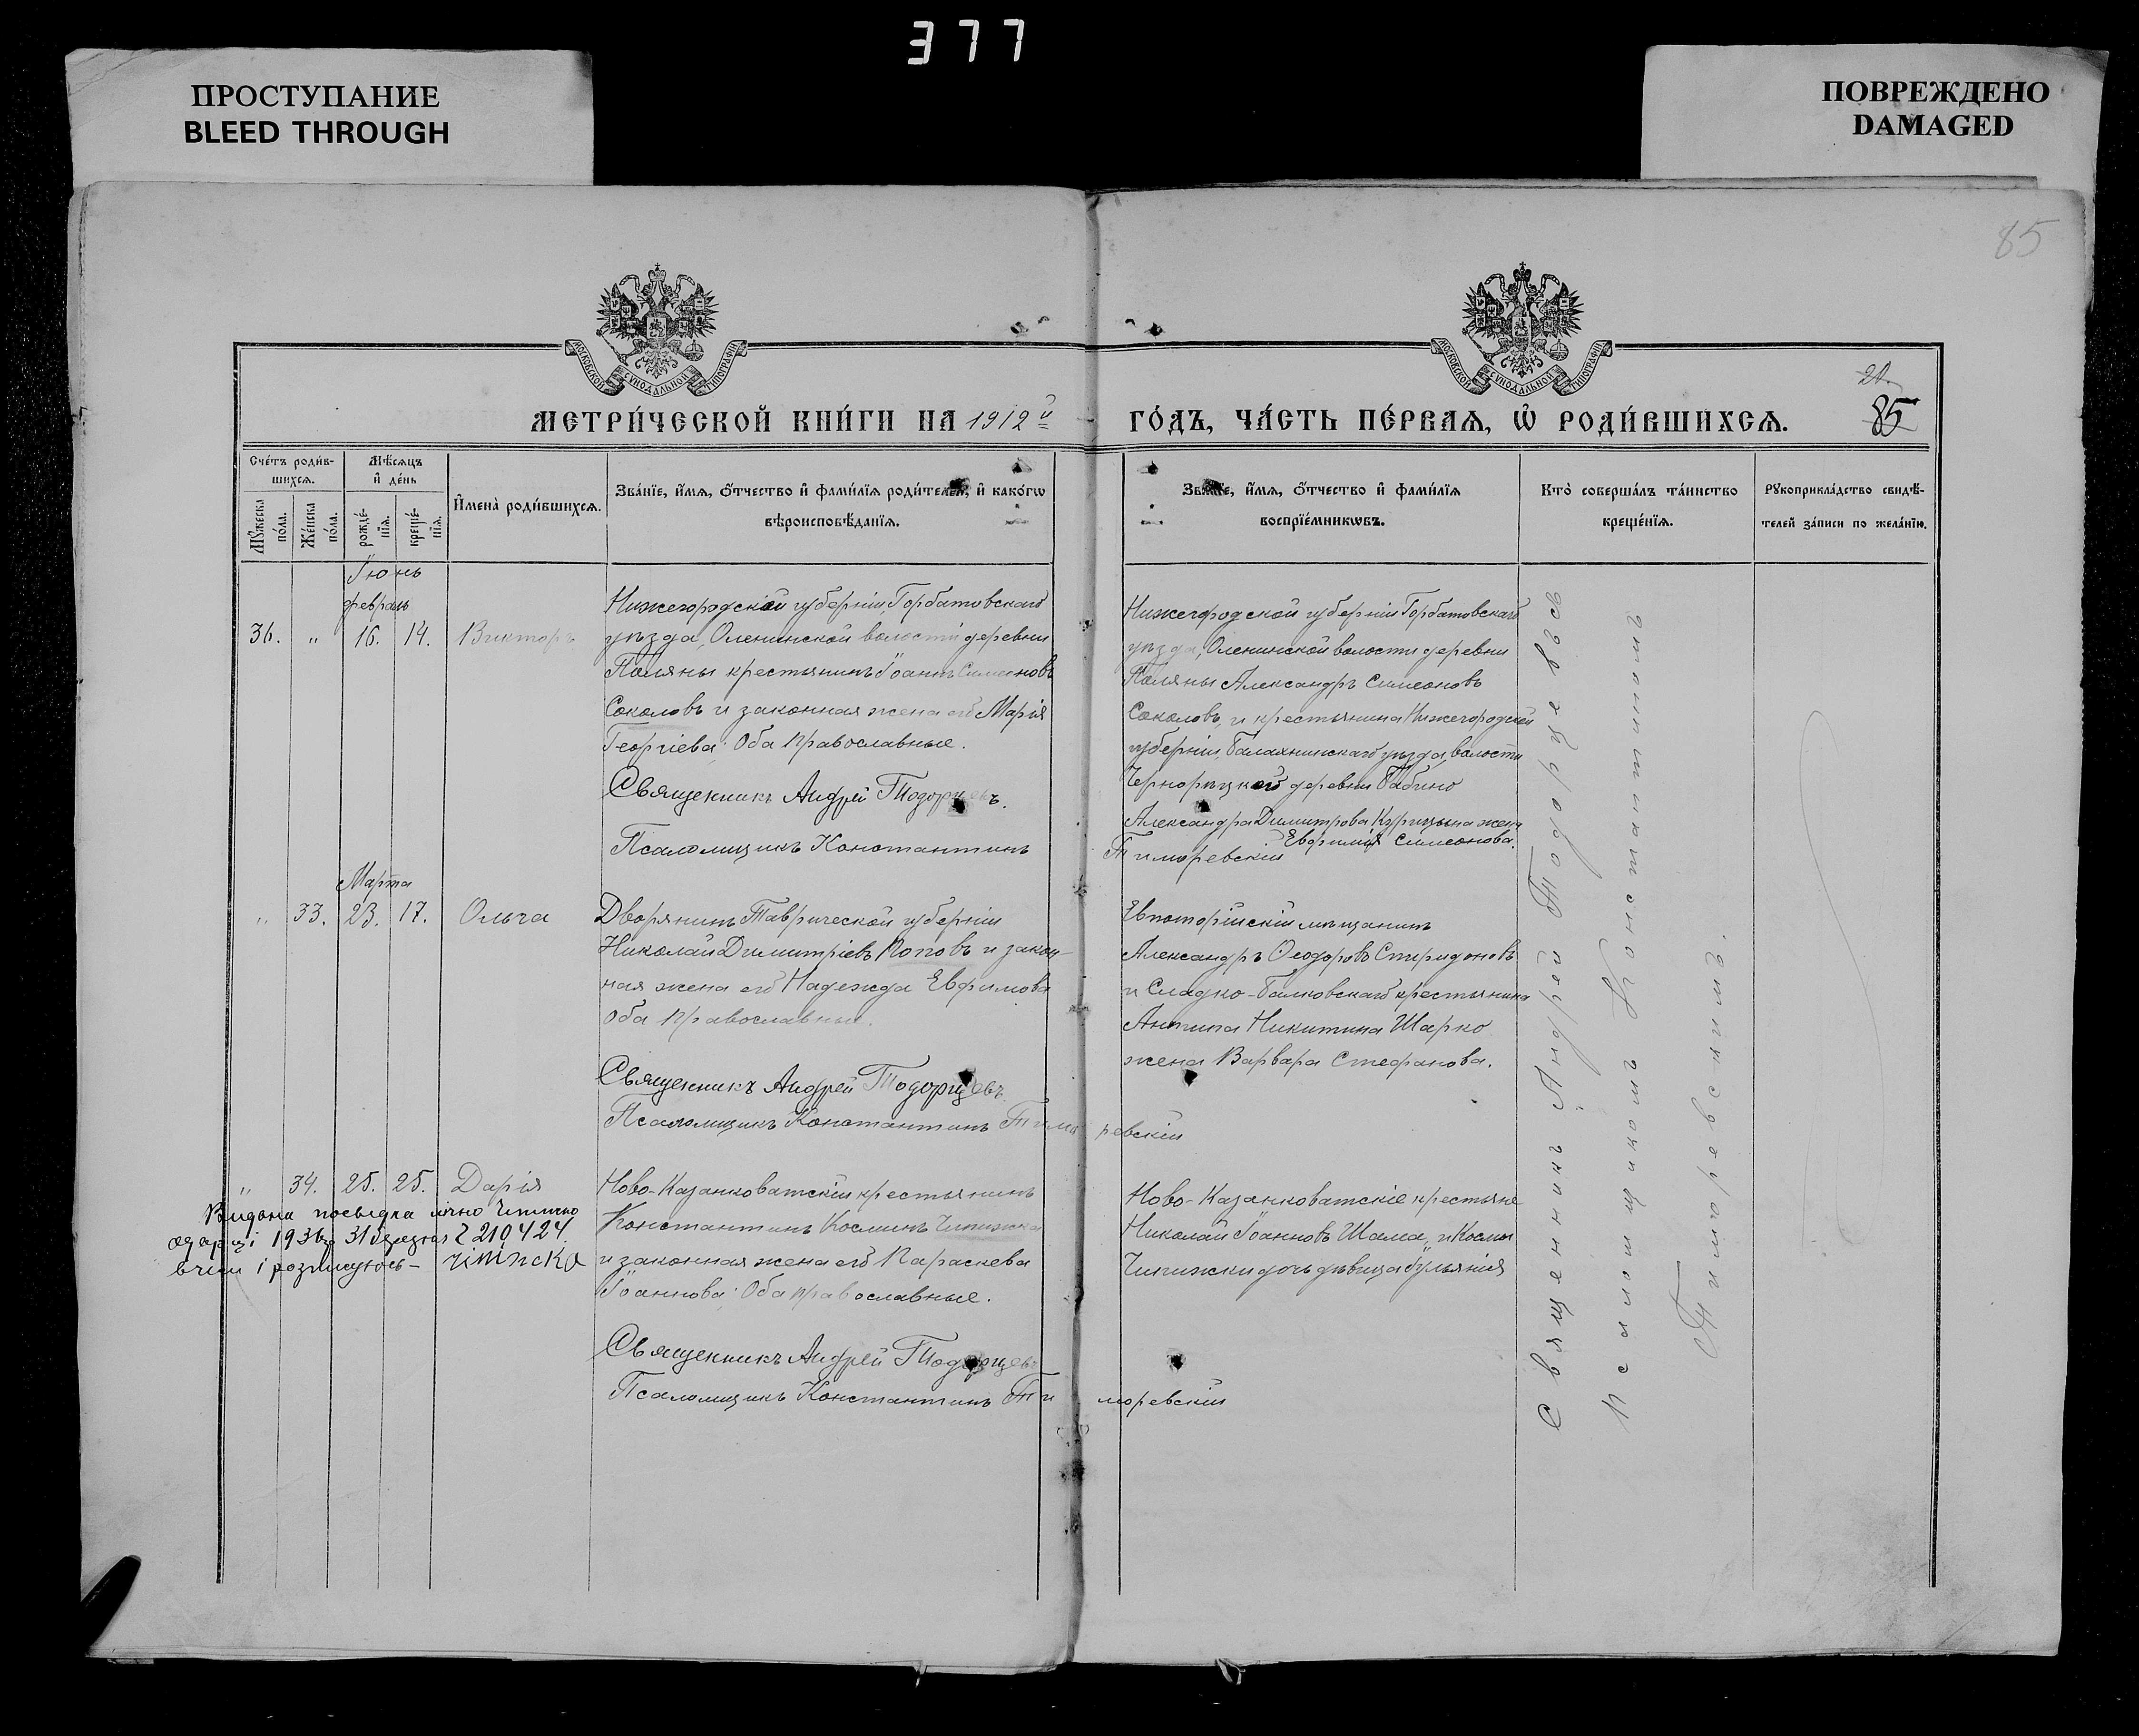 377
ПРОСТУПАНИЕ
BLEED THROUGH
ПОВРЕЖДЕНО
DAMAGED
85
МОСКОВСКОЙ СѴНОДАЛЬНОЙ ТИПОГРАФІИ
МОСКОВСКОЙ СѴНОДАЛЬНОЙ ТИПОГРАФІИ
21.
85
МЕТРИ́ЧЕСКОЙ КНИ́ГИ НА 1912й
ГО́ДЪ, ЧА́СТЬ ПЕ́РВАѦ, Ѡ҆ РОДИ́ВШИХСѦ.
Сче́тъ роди́в-
шихсѧ.
Мꙋжеска по́ла.
Же́нска по́ла.
Мѣ́сѧцъ
и҆ де́нь
рожде́-
нїѧ.
креще́-
нїѧ.
И҆мена̀ роди́вшихсѧ.
Зва́нїе, и҆́мѧ, ѻ҆́тчество и҆ фами́лїѧ роди́телей, и҆ како́гѡ
вѣроисповѣ́данїѧ.
Зва́нїе, и҆́мѧ, ѻ҆́тчество и҆ фами́лїѧ
воспрїе́мникѡвъ.
Кто̀ соверша́лъ та́инство
креще́нїѧ.
Рꙋкоприкла́дство свидѣ́-
телей за́писи по жела́нїю.
Іюнь
февраль
36. " 16. 14. Викторъ
Нижегородской губерніи, Горбатовскаго
уѣзда, Оленинской волости деревни
Поляны крестьянинъ Іоаннъ Симеоновъ
Соколовъ и законная жена его Марія
Георгіева; Оба православные.
Священникъ Андрей Тодорцевъ.
Псаломщикъ Константинъ Тиморевскій
Нижегородской губерніи Горбатовскаго
уѣзда, Оленинской волости деревни
Поляны Александръ Симеоновъ
Соколовъ, и крестьянина Нижегородской
губерніи, Балахнинскаго уѣзда, волости
Чернорѣцкой деревни Бабино
Александра Димитрова Курицына жена
Евфимія Симеонова.
Марта
" 33. 23. 17. Ольга
Дворянинъ Таврической губерніи
Николай Димитріевъ Поповъ и закон-
ная жена его Надежда Евфимова
Оба православные.
Священникъ Андрей Тодорцевъ.
Псаломщикъ Константинъ Тиморевскій
Евпаторійскій мѣщанинъ
Александръ Ѳеодоровъ Спиридоновъ
и Сладко-Балковскаго крестьянина
Антипа Никитина Шарко
жена Варвара Стефанова.
" 34. 25. 25. Дарія
Видана посвідка лічно
1936 31 № 210424.
і розписуюсь –
Ново-Казанковатскій крестьянинъ
Константинъ Косминъ Чипижка
и законная жена его Параскева
Іоаннова; Оба православные.
Священникъ Андрей Тодорцевъ
Псаломщикъ Константинъ Тиморевскій
Ново-Казанковатскіе крестьяне
Николай Іоанновъ Шама, и Космы
Чипижки дочь дѣвица Іуліанія
Священникъ Андрей Тодорцевъ съ
Псаломщикомъ Константиномъ
Тиморевскимъ.